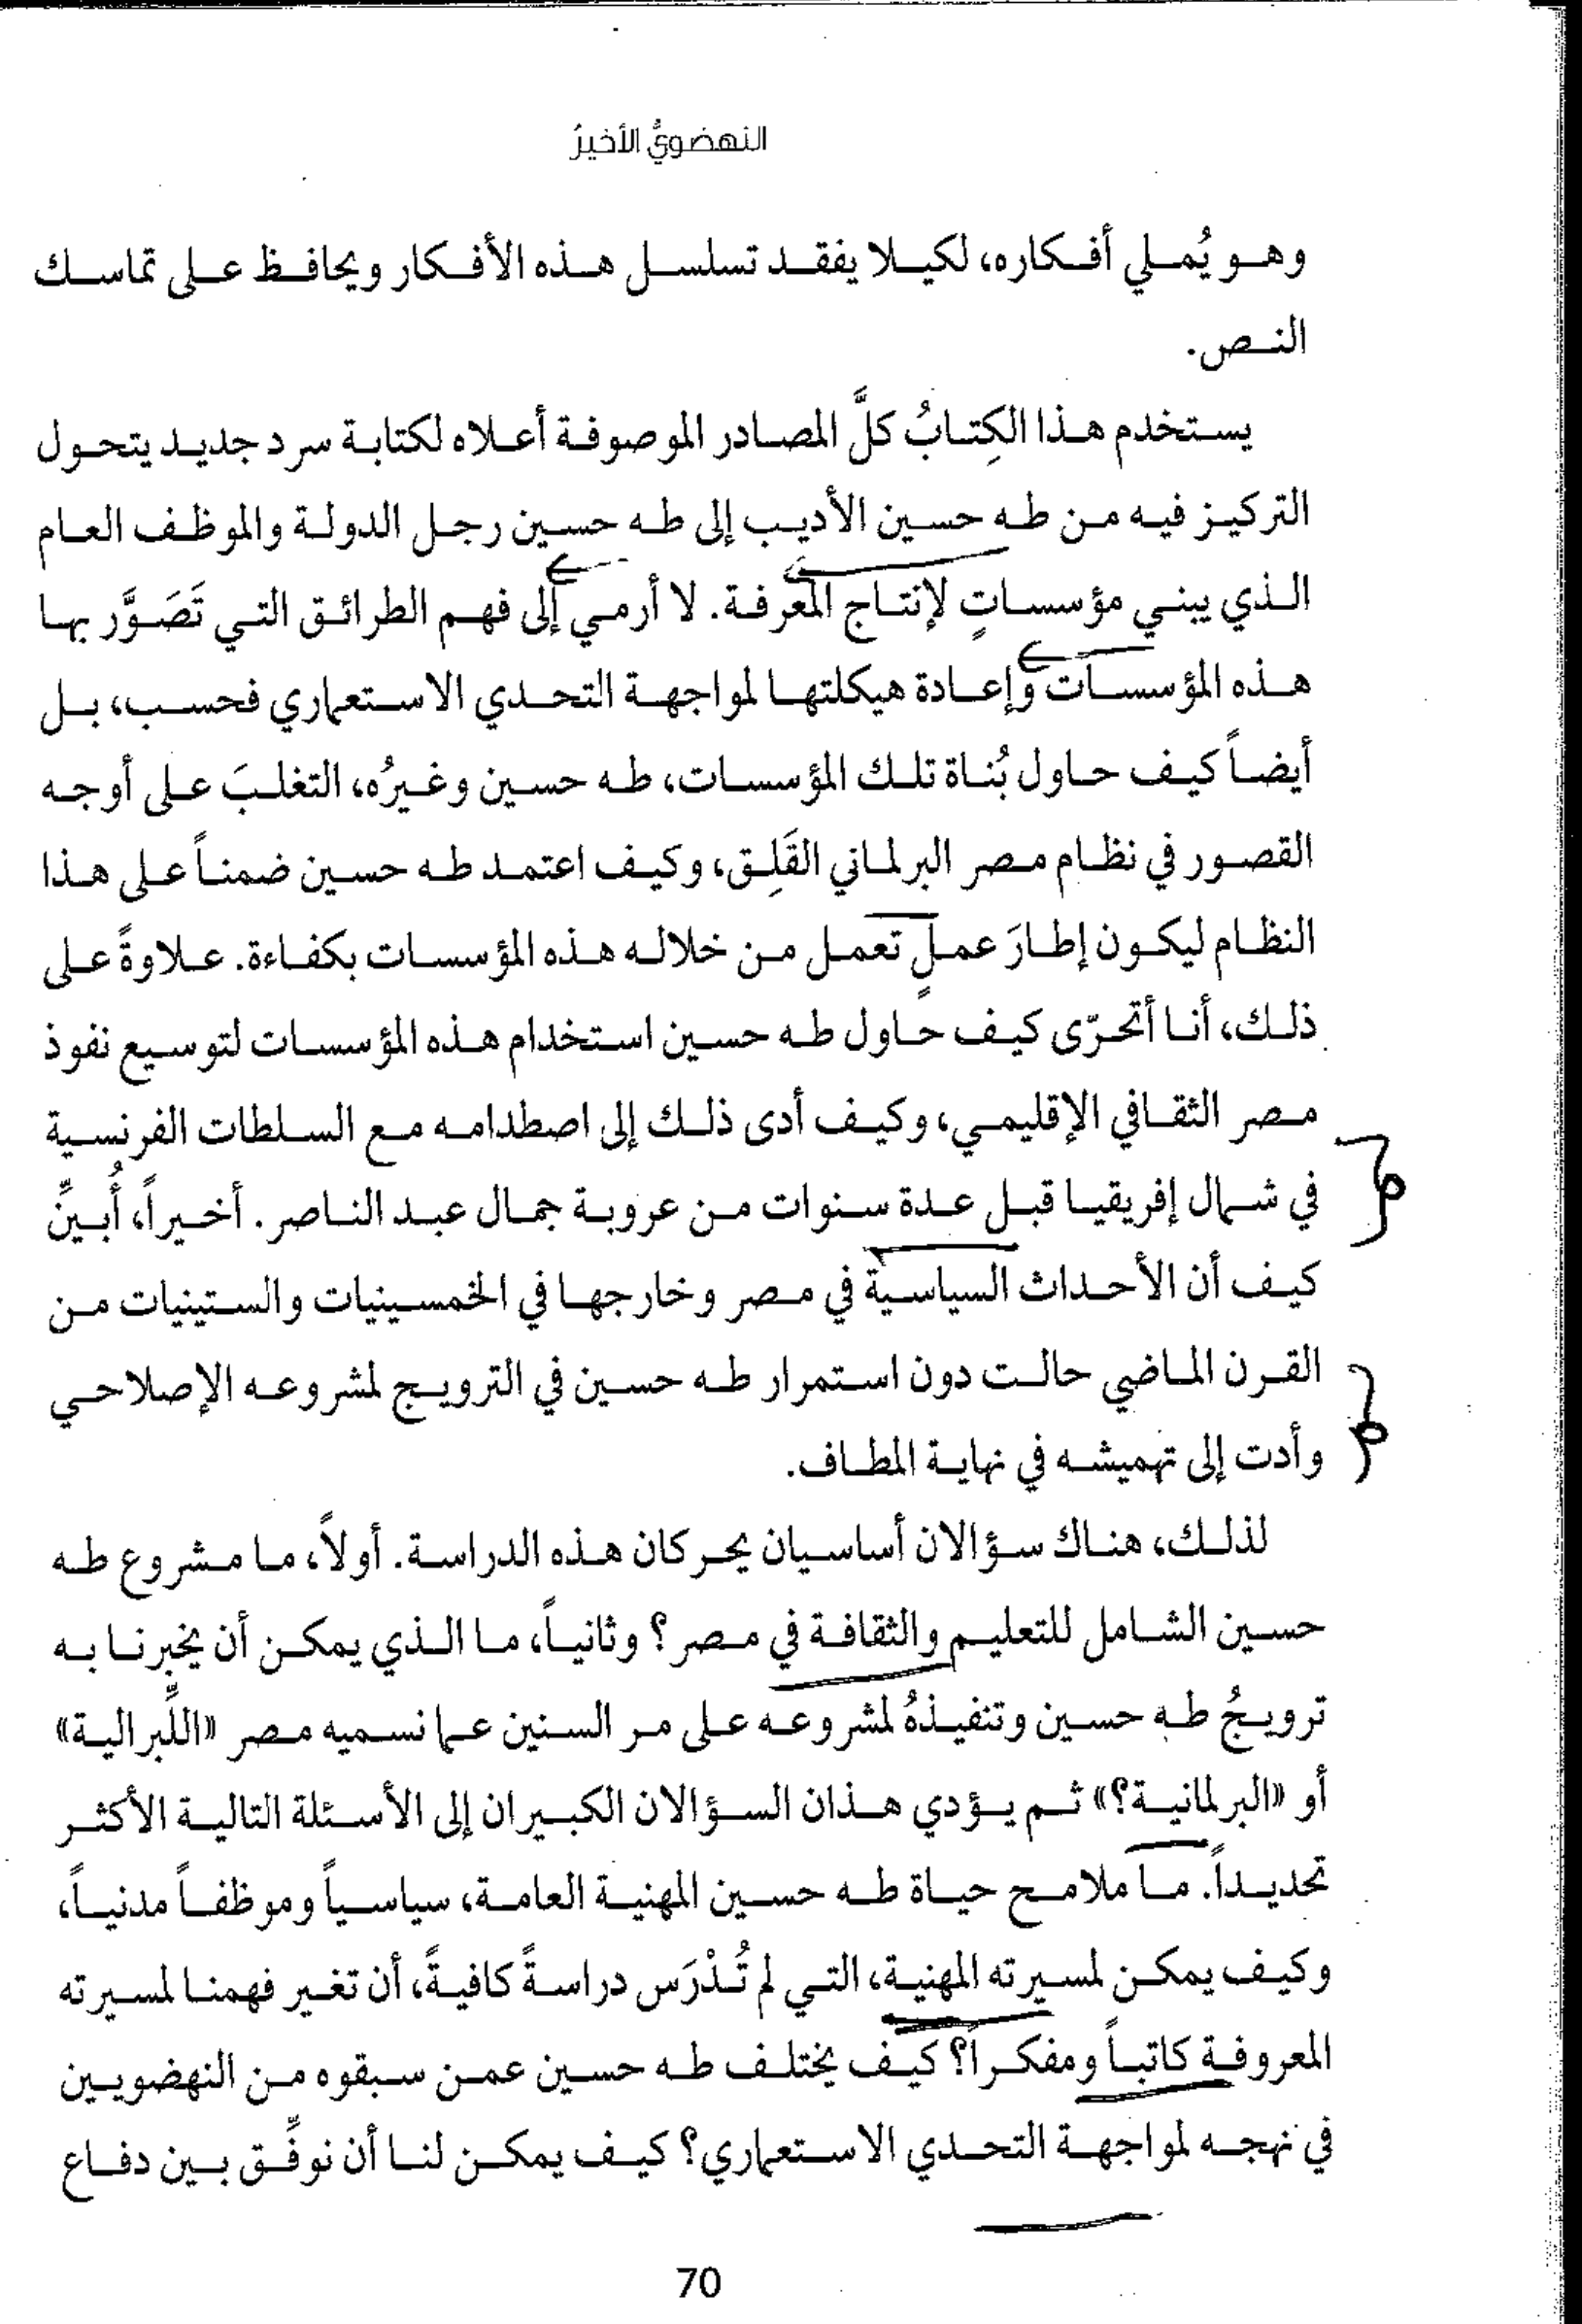 النهضويُّ الأخيرُ
وهو يُملي أفكاره، لكيلا يفقد تسلسل هذه الأفكار ويحافظ على تماسك
النص.
يستخدم هذا الكِتابُ كلَّ المصادر الموصوفة أعلاه لكتابة سرد جديد يتحول
التركيز فيه من طه حسين الأديب إلى طه حسين رجل الدولة والموظف العام
الذي يبني مؤسساتٍ لإنتاج المعرفة. لا أرمي إلى فهم الطرائق التي تَصَوَّر بها
هذه المؤسسات وإعادة هيكلتها لمواجهة التحدي الاستعماري فحسب، بل
أيضاً كيف حاول بُناة تلك المؤسسات، طه حسين وغيرُه، التغلبَ على أوجه
القصور في نظام مصر البرلماني القَلِق، وكيف اعتمد طه حسين ضمناً على هذا
النظام ليكون إطارَ عملٍ تعمل من خلاله هذه المؤسسات بكفاءة. علاوةً على
ذلك، أنا أتحرّى كيف حاول طه حسين استخدام هذه المؤسسات لتوسيع نفوذ
مصر الثقافي الإقليمي، وكيف أدى ذلك إلى اصطدامه مع السلطات الفرنسية
في شمال إفريقيا قبل عدة سنوات من عروبة جمال عبد الناصر. أخيراً، أُبيِّن
كيف أن الأحداث السياسية في مصر وخارجها في الخمسينيات والستينيات من
القرن الماضي حالت دون استمرار طه حسين في الترويج لمشروعه الإصلاحي
وأدت إلى تهميشه في نهاية المطاف.
لذلك، هناك سؤالان أساسيان يحركان هذه الدراسة. أولاً، ما مشروع طه
حسين الشامل للتعليم والثقافة في مصر؟ وثانياً، ما الذي يمكن أن يخبرنا به
ترويجُ طه حسين وتنفيذهُ لمشروعه على مر السنين عما نسميه مصر «اللِّبرالية»
أو «البرلمانية؟» ثم يؤدي هذان السؤالان الكبيران إلى الأسئلة التالية الأكثر
تحديداً. ما ملامح حياة طه حسين المهنية العامة، سياسياً وموظفاً مدنياً،
وكيف يمكن لمسيرته المهنية، التي لم تُدْرَس دراسةً كافيةً، أن تغير فهمنا لمسيرته
المعروفة كاتباً ومفكراً؟ كيف يختلف طه حسين عمن سبقوه من النهضويين
في نهجه لمواجهة التحدي الاستعماري؟ كيف يمكن لنا أن نوفِّق بين دفاع
70